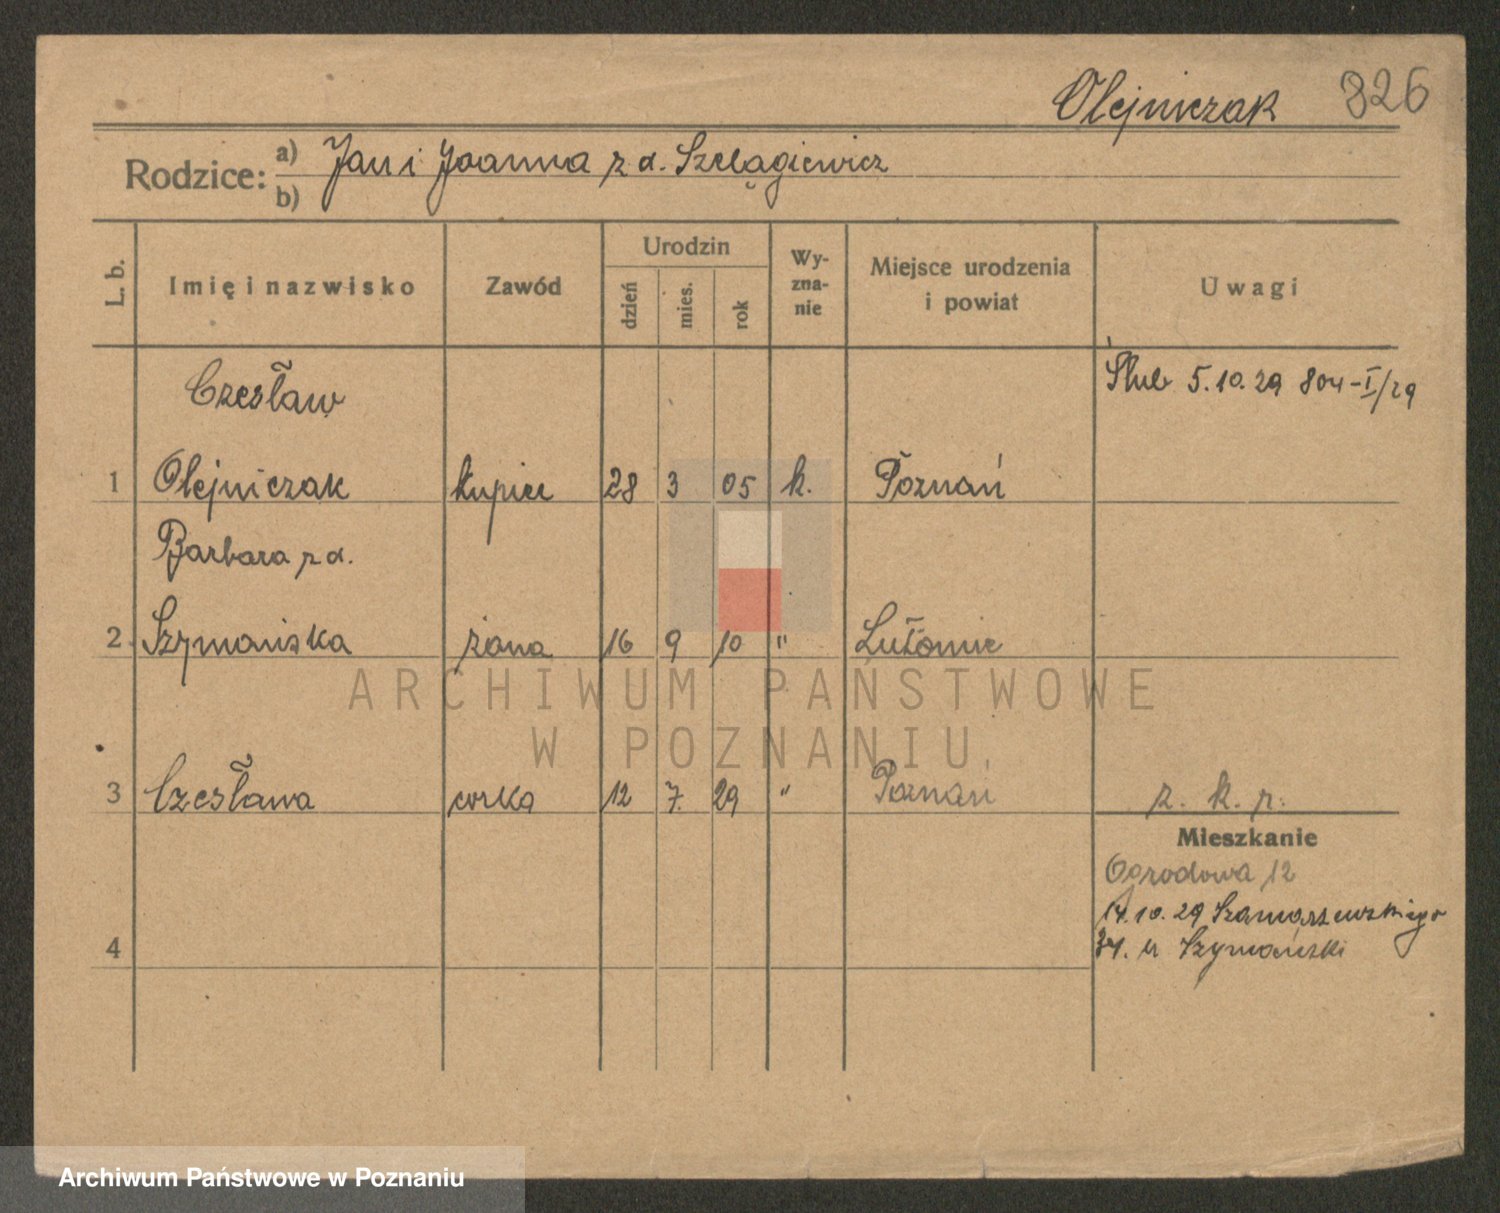 Olejniczak 826
Rodzice: a) Jan i Joanna z d. Szelągiewicz
b)
L. b. Imię i nazwisko Zawód Urodzin dzień mies. rok Wyznanie Miejsce urodzenia i powiat Uwagi
Czesław Ślub 5.10.29 804-I/29
1 Olejniczak kupiec 28 3 05 k. Poznań
Barbara z d.
2 Szymańska żona 16 9 10 " Lutomie
3 Czesława córka 12 7. 29 " Poznań z. k. p.
Mieszkanie
Ogrodowa 12
14.10.29 Szamarzewskiego
4 34. u Szymański
ARCHIWUM PAŃSTWOWE
W POZNANIU
Archiwum Państwowe w Poznaniu